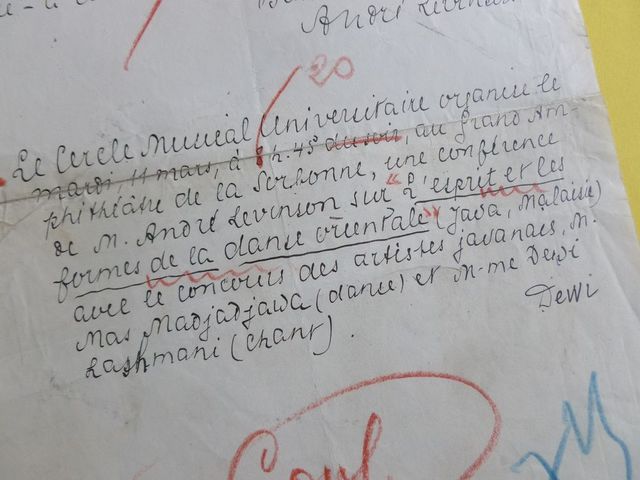 André Levinson
20
Le Cercle Musical Universitaire organise le
mardi, 11 mars, à 8 h. 45 du soir, au Grand Am-
phithéâtre de la Sorbonne, une conférence
de M. André Levinson sur "L'esprit et les
formes de la danse orientale" (Java, Malaisie)
avec le concours des artistes javanais, M.
Mas Madjadjawa (danse) et M-me Dewi
Lashmani (chant).
Dewi